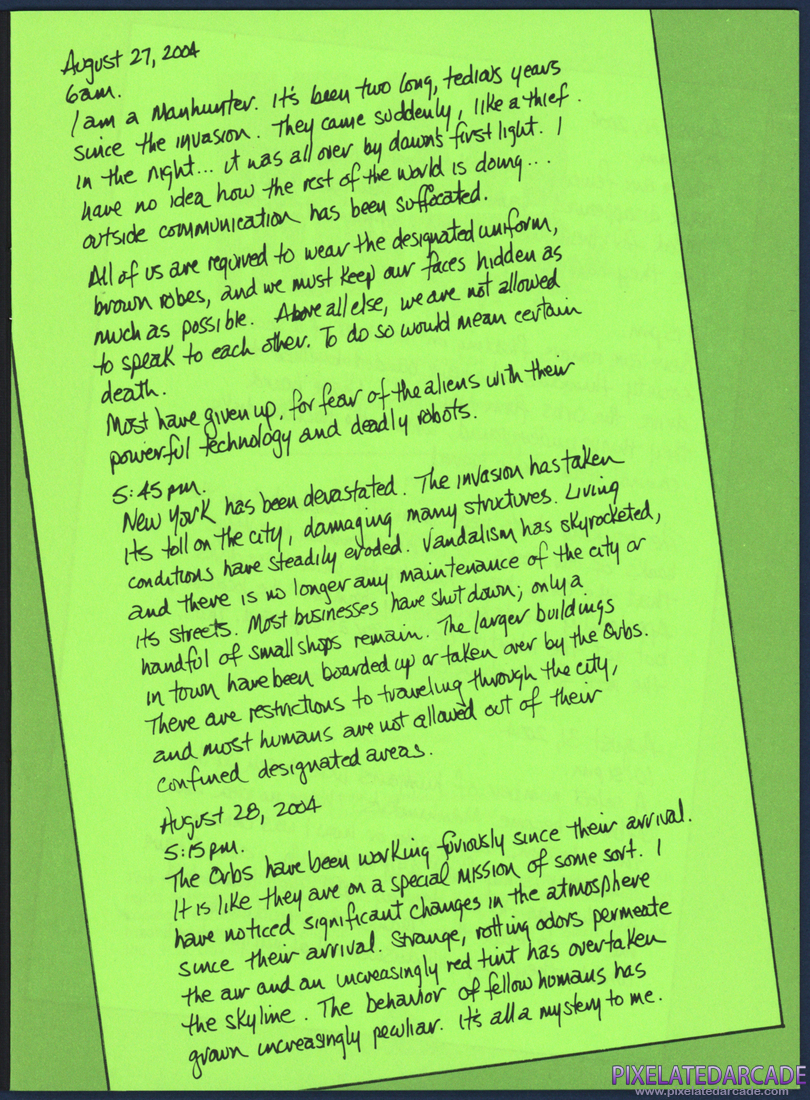 August 27, 2004
6am.
I am a Manhunter. It's been two long, tedious years
since the invasion. They came suddenly, like a thief
in the night... it was all over by dawn's first light. I
have no idea how the rest of the world is doing...
outside communication has been suffocated.
All of us are required to wear the designated uniform,
brown robes, and we must keep our faces hidden as
much as possible. Above all else, we are not allowed
to speak to each other. To do so would mean certain
death.
Most have given up, for fear of the aliens with their
powerful technology and deadly robots.
5:45 pm.
New York has been devastated. The invasion has taken
its toll on the city, damaging many structures. Living
conditions have steadily eroded. Vandalism has skyrocketed,
and there is no longer any maintenance of the city or
its streets. Most businesses have shut down; only a
handful of small shops remain. The larger buildings
in town have been boarded up or taken over by the Orbs.
There are restrictions to traveling through the city,
and most humans are not allowed out of their
confined designated areas.
August 28, 2004
5:15 pm.
The Orbs have been working furiously since their arrival.
It is like they are on a special mission of some sort. I
have noticed significant changes in the atmosphere
since their arrival. Strange, rotting odors permeate
the air and an increasingly red tint has overtaken
the skyline. The behavior of fellow humans has
grown increasingly peculiar. It's all a mystery to me.
PIXELATEDARCADE
www.pixelatedarcade.com